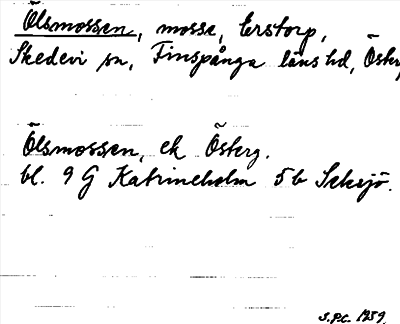 Ölsmossen, mosse, Erstorp,
Skedevi sn, Finspånga läns hd, Österg
Ölsmossen, ek Österg.
bl. 9 G Katrineholm 5 b Seksjö.
S.P.C. 1959